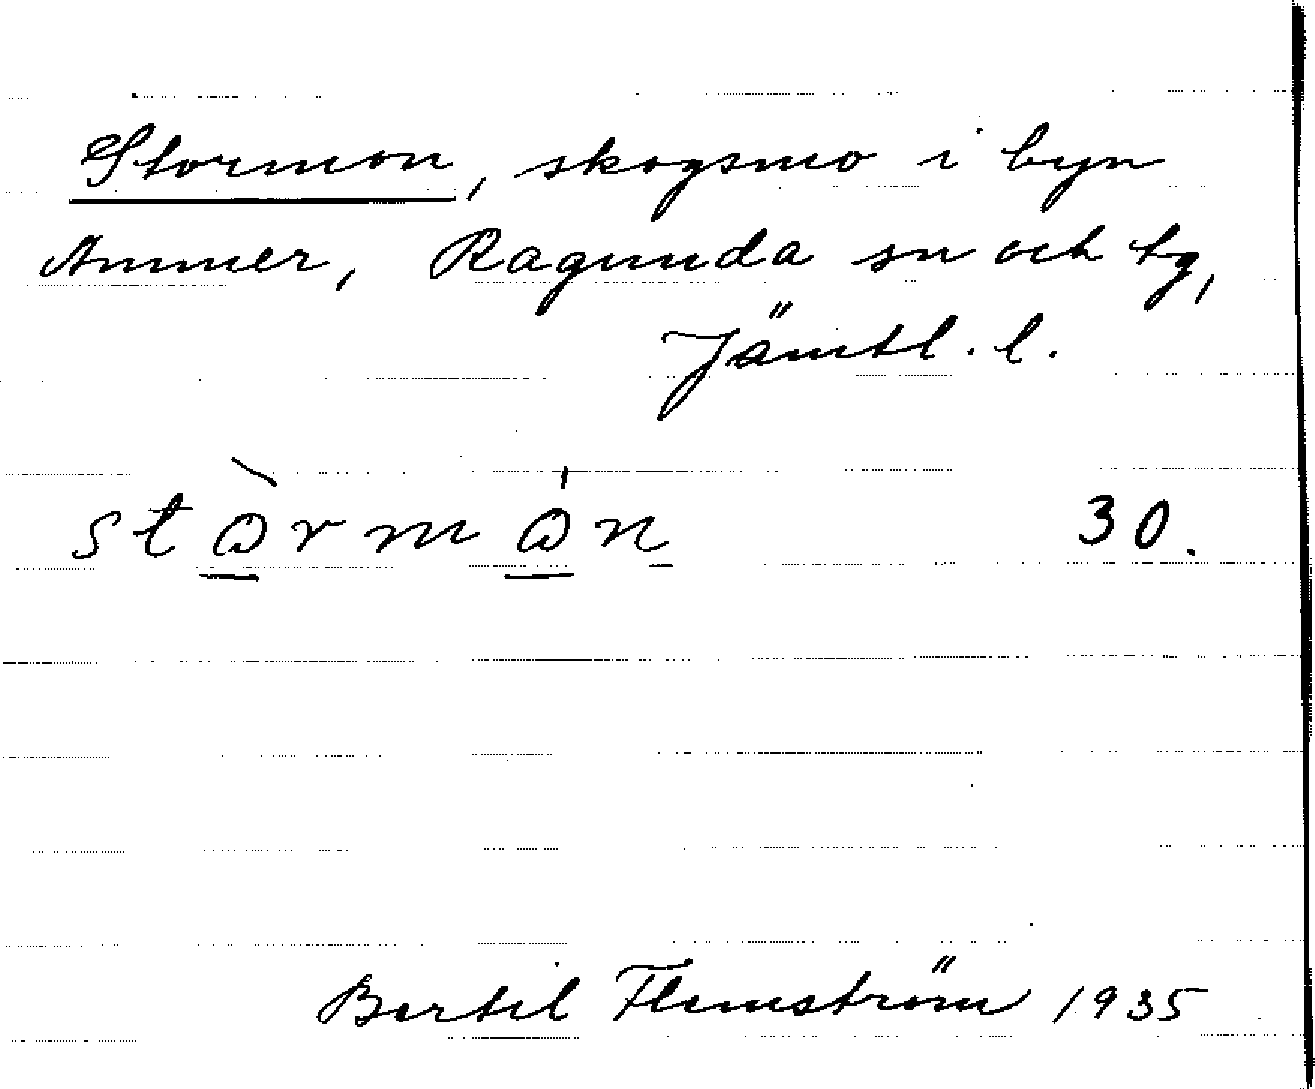 Stormon, skogsmo i byn
Ammer, Ragunda sn och tg,
Jämtl. l.
stɷ̀rmɷ́n 30.
Bertil Flemström 1935